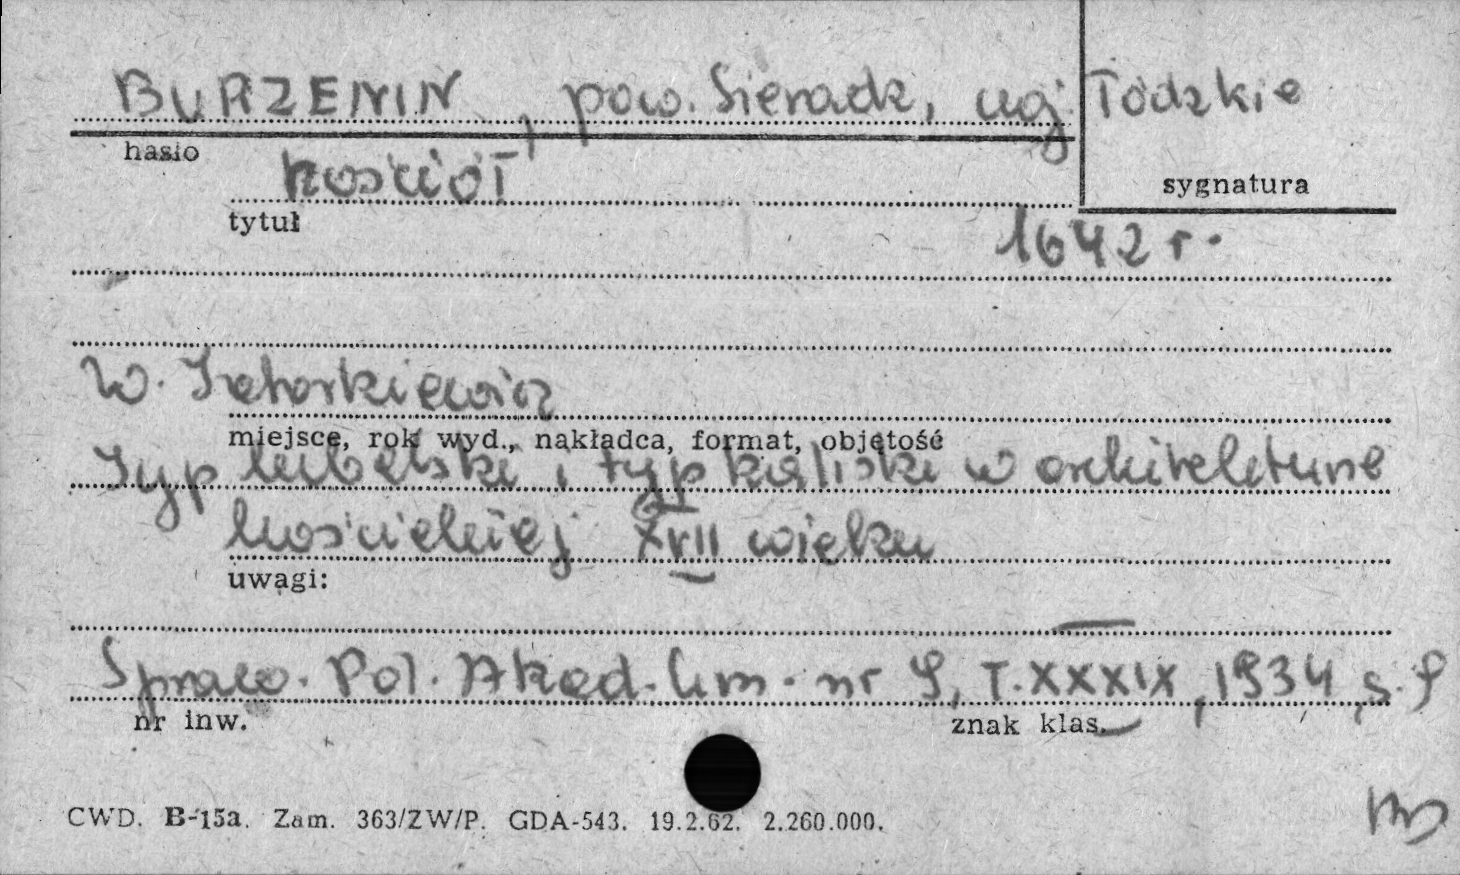 BURZENIN, pow. Sieradz, woj. Łódzkie
hasło
kościół
sygnatura
tytuł
1642 r.
W. Tatarkiewicz
miejsce, rok wyd., nakładca, format, objętość
Typ lubelski i typ kaliski w architekturze
kościelnej XVII wieku
uwagi:
Spraw. Pol. Akad. Um. nr 9, T. XXXIX, 1934, s. 9
nr inw.
znak klas.
CWD. B-15a. Zam. 363/ZW/P. GDA-543. 19.2.62. 2.260.000.